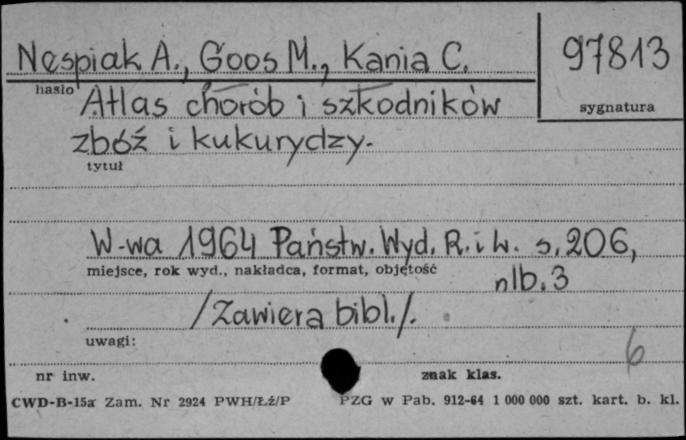 Nespiak A., Goos M., Kania C.
97813
hasło
sygnatura
Atlas chorób i szkodników
zbóż i kukurydzy.
tytuł
W-wa 1964 Państw. Wyd. R. i L. s. 206,
miejsce, rok wyd., nakładca, format, objętość
nlb. 3
/Zawiera bibl./.
uwagi:
6
nr inw.
znak klas.
CWD-B-15a Zam. Nr 2924 PWH/Łź/P
PZG w Pab. 912-64 1 000 000 szt. kart. b. kl.